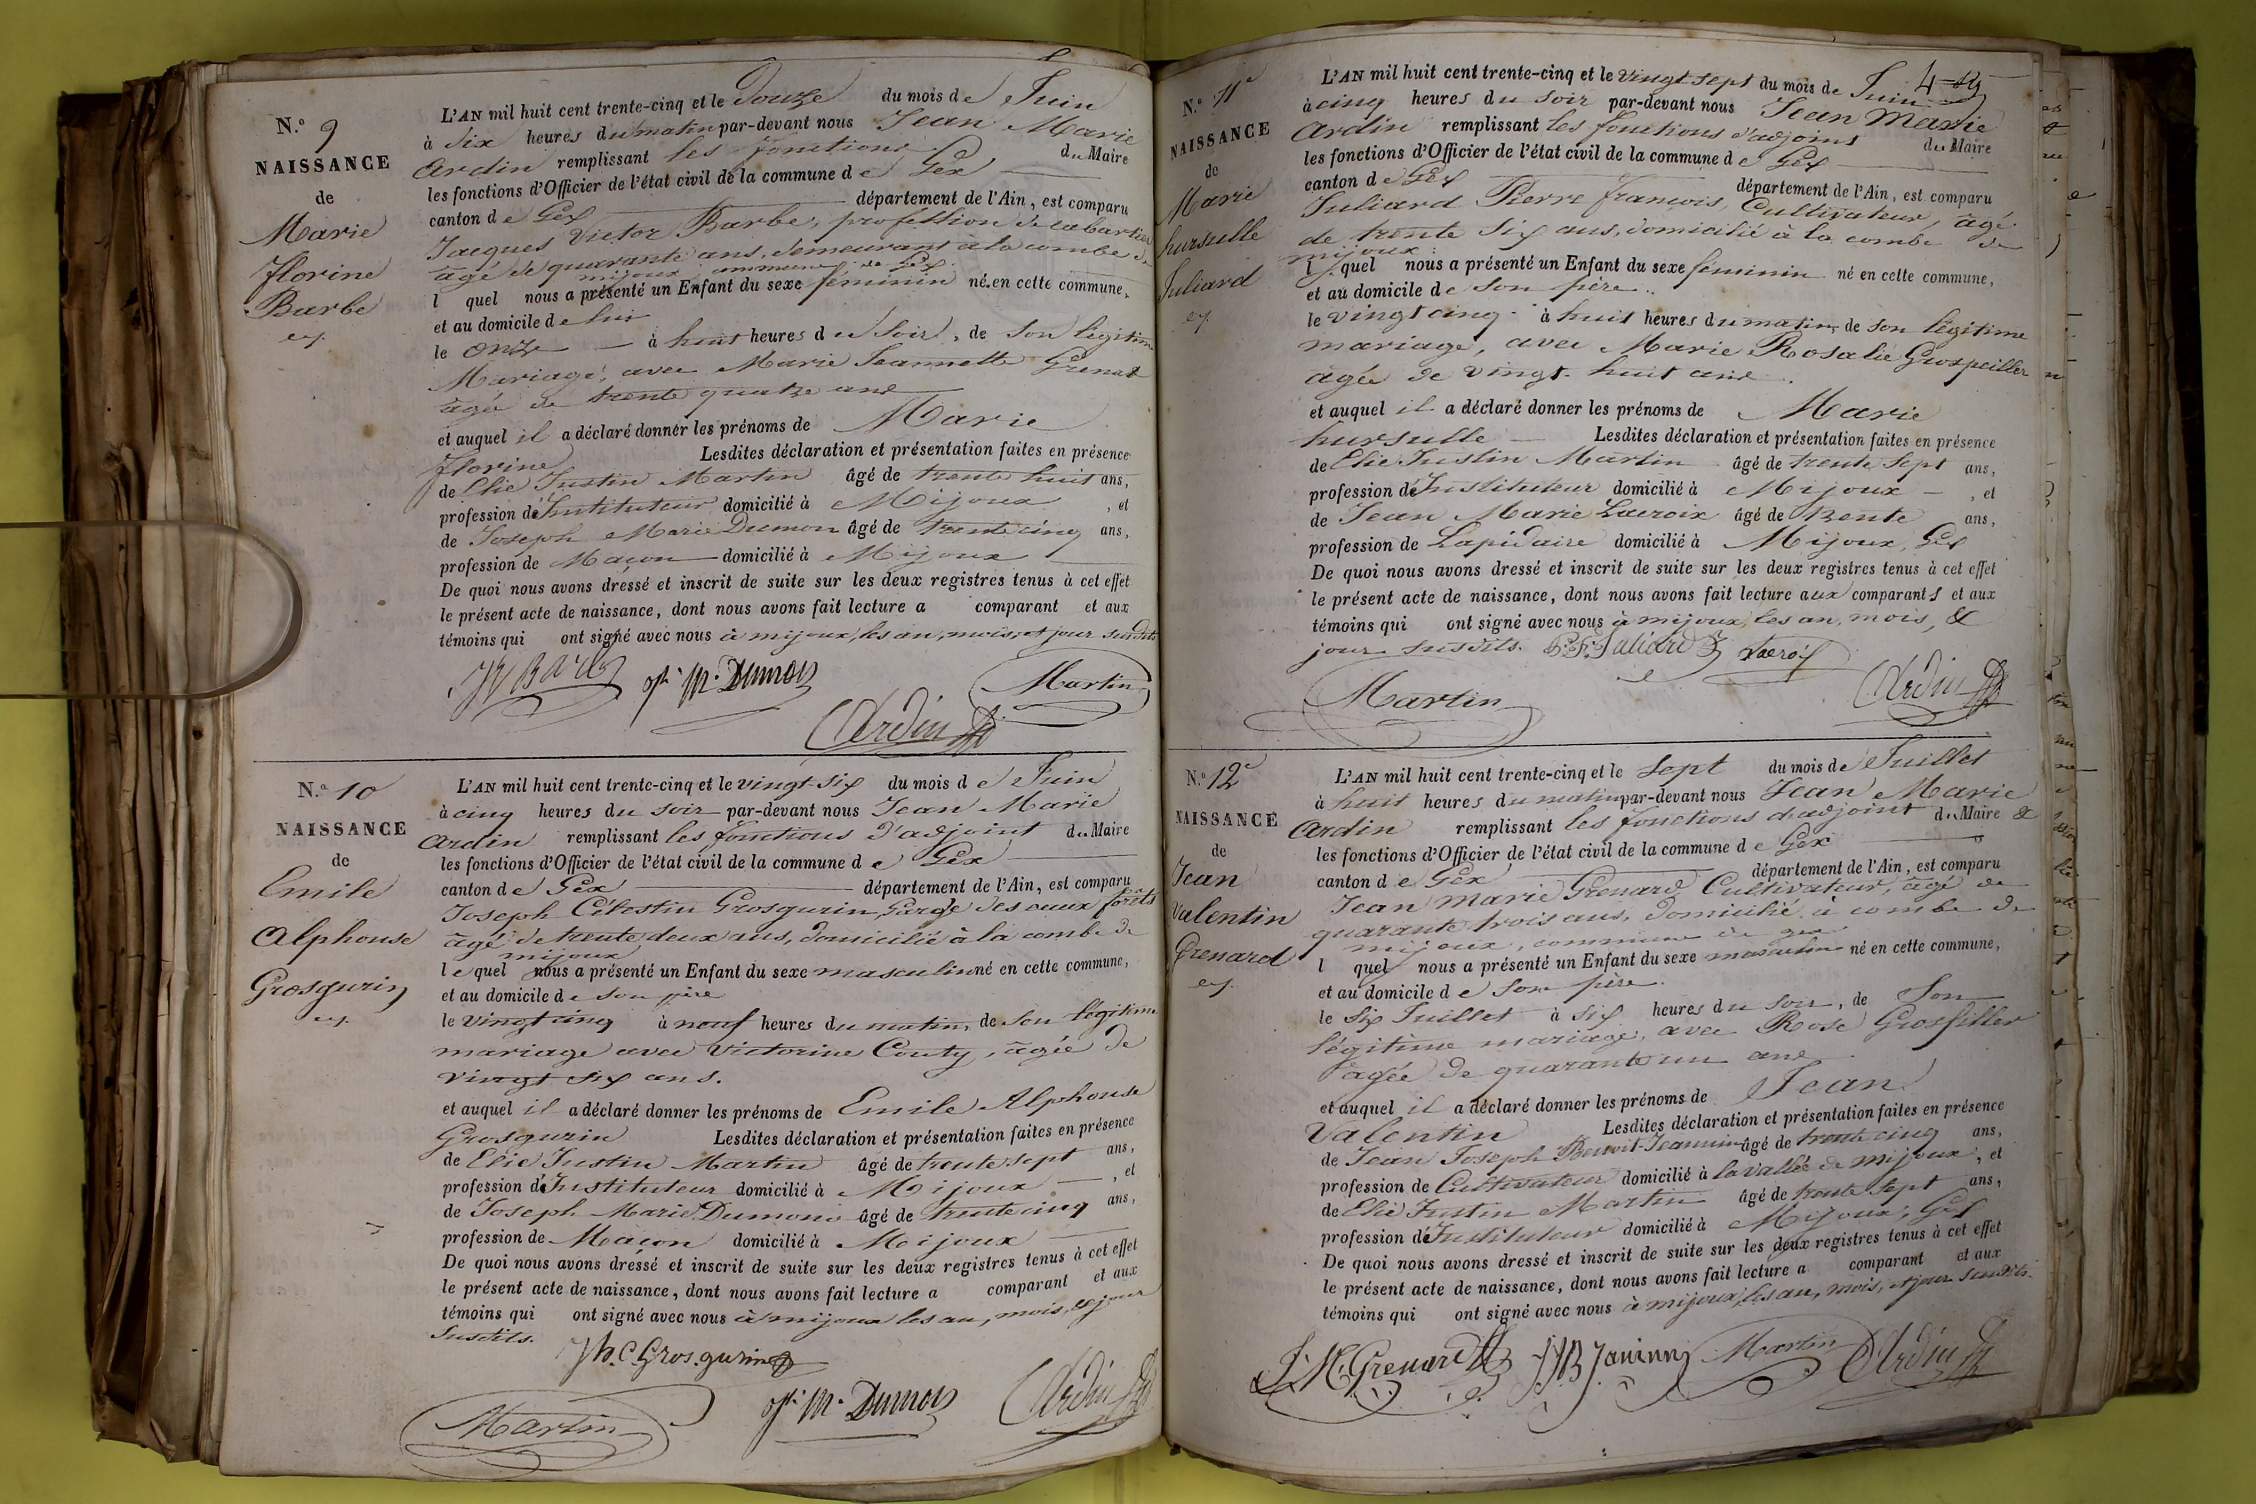 N.º 9
NAISSANCE
de
Marie
florine
Barbe
L'AN mil huit cent trente-cinq et le Douze du mois de Juin
à six heures du matin par-devant nous Jean Marie
Ardin remplissant les fonctions du Maire
les fonctions d'Officier de l'état civil de la commune de Gex
canton de Gex département de l'Ain, est comparu
Jacques Victor Barbe, profession de cabartier
âgé de quarante ans, demeurant à la combe de
mijoux commune de Gex
l quel nous a présenté un Enfant du sexe féminin né en cette commune,
et au domicile de lui
le onze à huit heures du soir, de son légitime
Mariage, avec Marie Jeannette Grenat
âgée de trente quatre ans
et auquel il a déclaré donner les prénoms de Marie
florine Lesdites déclaration et présentation faites en présence
de Elie Justin Martin âgé de trente huit ans,
profession d'Instituteur domicilié à Mijoux, et
de Joseph Marie Dumon âgé de trente cinq ans,
profession de Maçon domicilié à Mijoux
De quoi nous avons dressé et inscrit de suite sur les deux registres tenus à cet effet
le présent acte de naissance, dont nous avons fait lecture a comparant et aux
témoins qui ont signé avec nous à mijoux, les an, mois, et jour susdits
M. Dumon Martin
Ardin
N.º 10
NAISSANCE
de
Emile
Alphonse
Grosgurin
L'AN mil huit cent trente-cinq et le vingt six du mois de Juin
à cinq heures du soir par-devant nous Jean Marie
Ardin remplissant les fonctions d'adjoint du Maire
les fonctions d'Officier de l'état civil de la commune de Gex
canton de Gex département de l'Ain, est comparu
Joseph Célestin Grosgurin, Garde des eaux forêts
âgé de trente deux ans, domicilié à la combe de
mijoux
le quel nous a présenté un Enfant du sexe masculin né en cette commune,
et au domicile de son père
le vingt cinq à neuf heures du matin, de son légitime
mariage avec Victorine Couty, âgée de
vingt six ans.
et auquel il a déclaré donner les prénoms de Emile Alphonse
Grosgurin Lesdites déclaration et présentation faites en présence
de Elie Justin Martin âgé de trente sept ans,
profession d'Instituteur domicilié à Mijoux, et
de Joseph Marie Dumon âgé de trente cinq ans,
profession de Maçon domicilié à Mijoux
De quoi nous avons dressé et inscrit de suite sur les deux registres tenus à cet effet
le présent acte de naissance, dont nous avons fait lecture a comparant et aux
témoins qui ont signé avec nous à mijoux les an, mois, & jour
susdits.
Jh. C. Gros.gurin
Martin M. Dumon Ardin
N.º 11e
NAISSANCE
de
Marie
hursulle
Juliard
L'AN mil huit cent trente-cinq et le vingt sept du mois de Juin
à cinq heures du soir par-devant nous Jean Marie
Ardin remplissant les fonctions d'adjoint du Maire
les fonctions d'Officier de l'état civil de la commune de Gex
canton de Gex département de l'Ain, est comparu
Juliard Pierre françois, Cultivateur, âgé
de trente six ans, domicilié à la combe de
mijoux
l quel nous a présenté un Enfant du sexe féminin né en cette commune,
et au domicile de son père
le vingt cinq à huit heures du matin, de son légitime
mariage, avec Marie Rosalie Grospeiller
âgée de vingt-huit ans
et auquel il a déclaré donner les prénoms de Marie
hursulle Lesdites déclaration et présentation faites en présence
de Elie Justin Martin âgé de trente sept ans,
profession d'Instituteur domicilié à Mijoux, et
de Jean Marie Lacroix âgé de trente ans,
profession de Lapidaire domicilié à Mijoux, Gex
De quoi nous avons dressé et inscrit de suite sur les deux registres tenus à cet effet
le présent acte de naissance, dont nous avons fait lecture aux comparants et aux
témoins qui ont signé avec nous à mijoux, les an, mois, &
jour susdits. P. F. Juliard Lacroix
Martin Ardin
N.º 12e
NAISSANCE
de
Jean
Valentin
Grenard
L'AN mil huit cent trente-cinq et le sept du mois de Juillet
à huit heures du matin par-devant nous Jean Marie
Ardin remplissant les fonctions d'adjoint du Maire &
les fonctions d'Officier de l'état civil de la commune de Gex
canton de Gex département de l'Ain, est comparu
Jean Marie Grenard Cultivateur, âgé de
quarante trois ans, domicilié à combe de
mijoux, commune de gex
l quel nous a présenté un Enfant du sexe masculin né en cette commune,
et au domicile de son père.
le six Juillet à six heures du soir, de Son
légitime mariage, avec Rose Grosfiller
âgée de quarante un ans
et auquel il a déclaré donner les prénoms de Jean
Valentin Lesdites déclaration et présentation faites en présence
de Jean Joseph Benoit-Jeannin âgé de trente cinq ans,
profession de Cultivateur domicilié à la vallée de mijoux, et
de Elie Justin Martin âgé de trente sept ans,
profession d'Instituteur domicilié à Mijoux, Gex
De quoi nous avons dressé et inscrit de suite sur les deux registres tenus à cet effet
le présent acte de naissance, dont nous avons fait lecture a comparant et aux
témoins qui ont signé avec nous à mijoux, les an, mois, et jour susdits.
J. M. Grenard JJB Janinn Martin Ardin